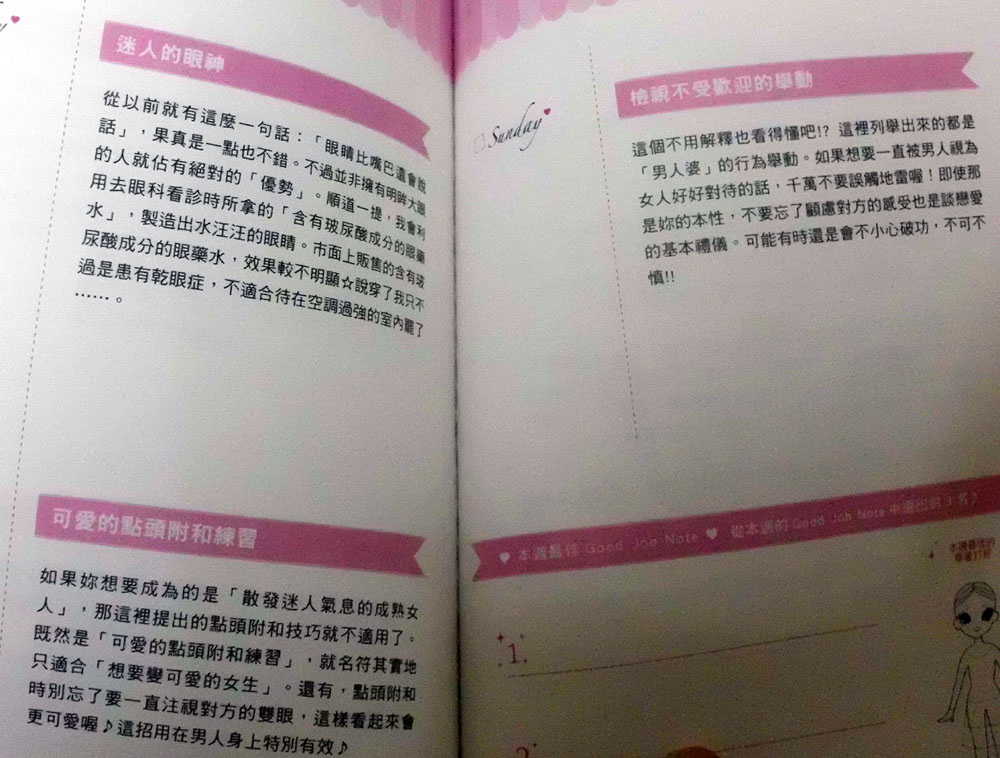 迷人的眼神
從以前就有這麼一句話：「眼睛比嘴巴還會說
話」，果真是一點也不錯。不過並非擁有明眸大眼
的人就佔有絕對的「優勢」。順道一提，我會利
用去眼科看診時所拿的「含有玻尿酸成分的眼藥
水」，製造出水汪汪的眼睛。市面上販售的含有玻
尿酸成分的眼藥水，效果較不明顯☆說穿了我只不
過是患有乾眼症，不適合待在空調過強的室內罷了
……。
可愛的點頭附和練習
如果妳想要成為的是「散發迷人氣息的成熟女
人」，那這裡提出的點頭附和技巧就不適用了。
既然是「可愛的點頭附和練習」，就名符其實地
只適合「想要變可愛的女生」。還有，點頭附和
時別忘了要一直注視對方的雙眼，這樣看起來會
更可愛喔♪這招用在男人身上特別有效♪
Sunday
檢視不受歡迎的舉動
這個不用解釋也看得懂吧!? 這裡列舉出來的都是
「男人婆」的行為舉動。如果想要一直被男人視為
女人好好對待的話，千萬不要誤觸地雷喔！即使那
是妳的本性，不要忘了顧慮對方的感受也是談戀愛
的基本禮儀。可能有時還是會不小心破功，不可不
慎!!
♥ 本週最佳 Good Job Note ♥ 從本週的 Good Job Note 中選出前 3 名♪
1.
2